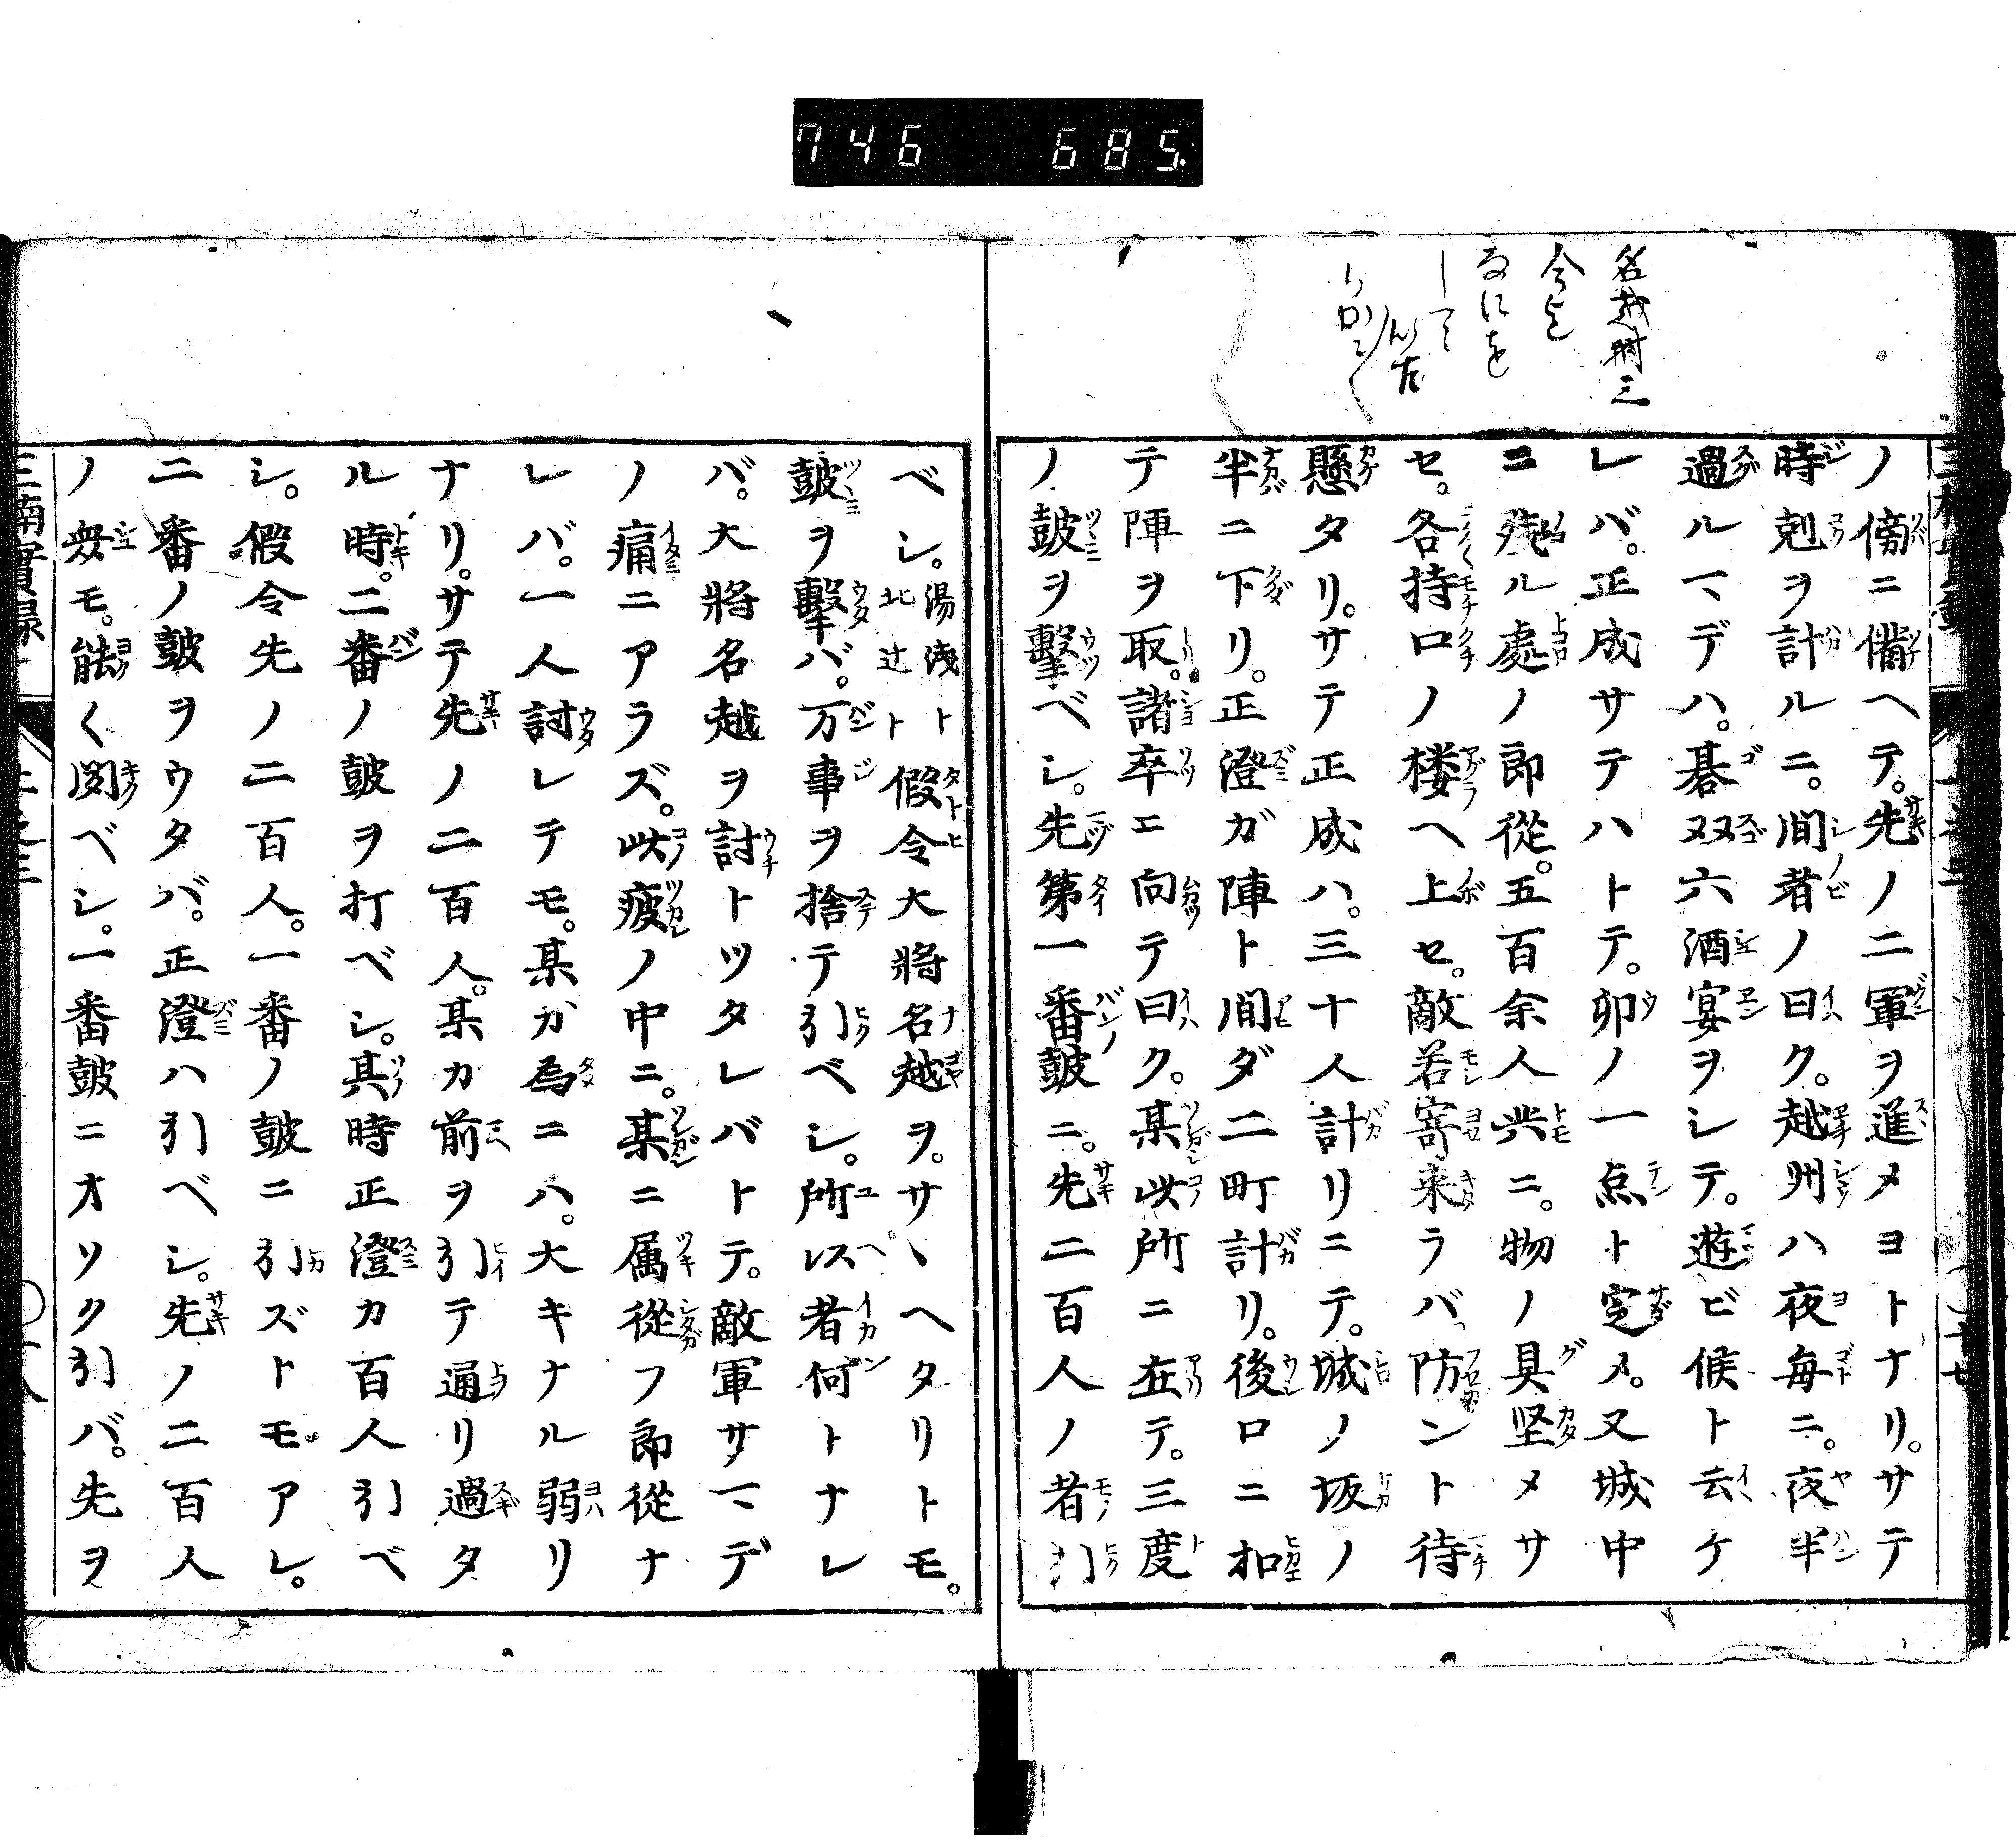 746 685
名越時三
ノ傍ニ備ヘテ。先ノ二軍ヲ進メヨトナリ。サテ
時剋ヲ計ルニ。間者ノ曰ク。越州ハ夜毎ニ。夜半
過ルマデハ。碁双六酒宴ヲシテ。遊ビ候ト云ケ
レバ。正成サテハトテ。卯ノ一点ト定メ。又城中
ニ残ル處ノ郎從。五百余人共ニ。物ノ具坚メサ
セ。各持口ノ楼ヘ上セ。敵若寄来ラバ防ント待
懸タリ。サテ正成ハ。三十人計リニテ。城ノ坂ノ
半ニ下リ。正澄ガ陣ト間ダ二町計リ。後ロニ扣
テ陣ヲ取。諸卒ニ向テ曰ク。某此所ニ在テ。三度
ノ鼓ヲ擊ベシ。先第一番鼓ニ。先二百人ノ者引
ベシ。湯浅ト北辻ト假令大將名越ヲ。サヽヘタリトモ。
鼓ヲ擊バ。万事ヲ捨テ引ベシ。所以者何トナレ
バ。大將名越ヲ討トツタレバトテ。敵軍サマデ
ノ痛ニアラズ。此疲ノ中ニ。某ニ属從フ郎從ナ
レバ。一人討レテモ。某ガ為ニハ。大キナル弱リ
ナリ。サテ先ノ二百人。某カ前ヲ引テ通リ過タ
ル時。二番ノ鼓ヲ打ベシ。其時正澄カ百人引ベ
シ。假令先ノ二百人。一番ノ鼓ニ引ズトモアレ。
二番ノ鼓ヲウタバ。正澄ハ引ベシ。先ノ二百人
ノ衆モ。能く聞ベシ。一番鼓ニオソク引バ。先ヲ